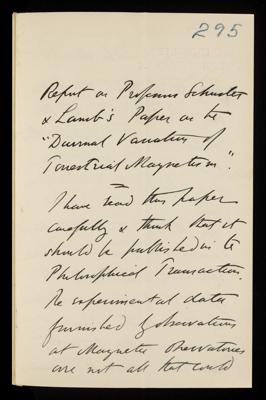 295
Report on Professors Schuster
& Lamb's Paper on the
"Diurnal Variation of
Terrestrial Magnetism".
I have read this paper
carefully & think that it
should be published in the
Philosophical Transactions.
The experimental data
furnished by observations
at Magnetic Observatories
are not all that could